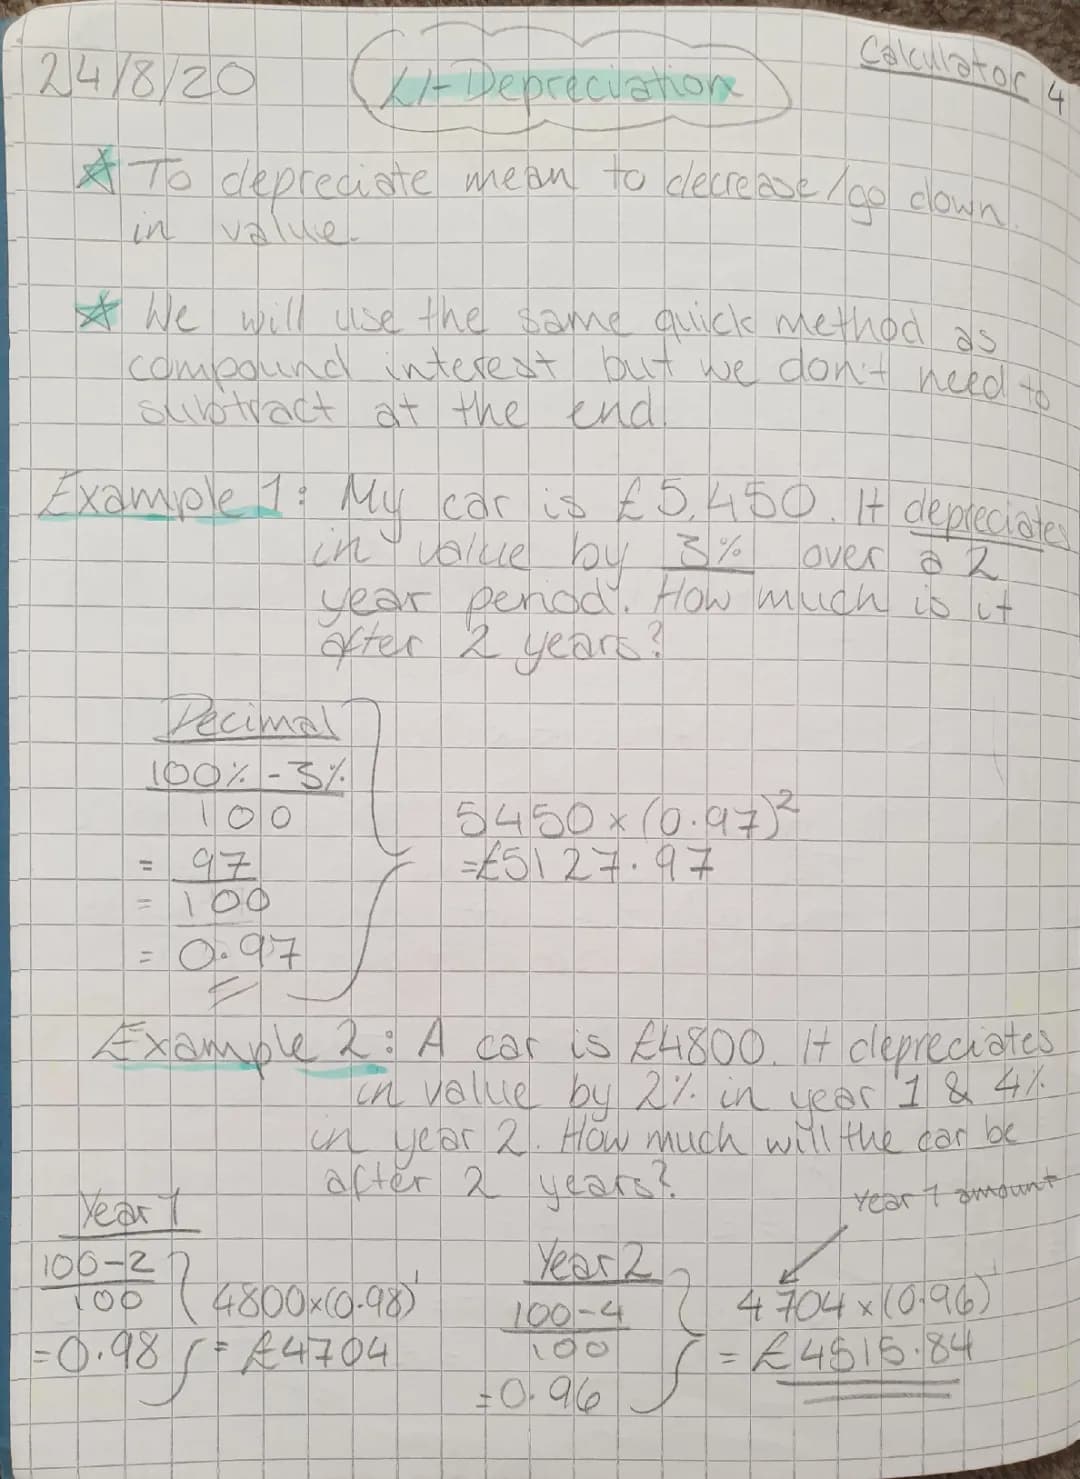 24/8/20
LI-Depreciation
Calculator 4
To depreciate mean to decrease/go down
in value.
We will use the same quick method as
compound interest but we don't need to
subtract at the end.
Example 1: My car is £5,450. It depreciates
in value by 3% over a 2
year period. How much is it
after 2 years?
Decimal
100% - 3%
100
= 97
= 100
= 0.97
5450 × (0.97)²
= £5127.97
Example 2: A car is £4800. It depreciates
in value by 2% in year 1 & 4%
in year 2. How much will the car be
after 2 years?
Year 1
100-2
100
= 0.98
4800×(0.98)¹
= £4704
Year 2
100-4
100
= 0.96
Year 1 amount
4704 × (0.96)¹
= £4515.84